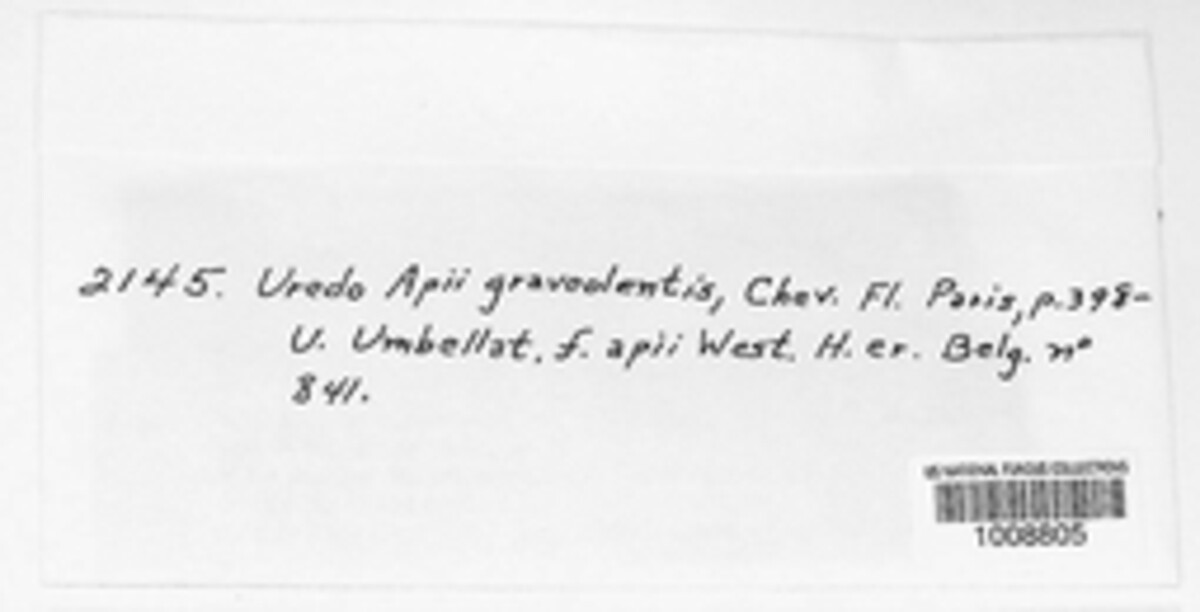 2145. Uredo Apii graveolentis, Chev. Fl. Paris, p. 398-
U. Umbellat. f. apii West. H. cr. Belg. nº
841.
US NATIONAL FUNGUS COLLECTIONS
1008805